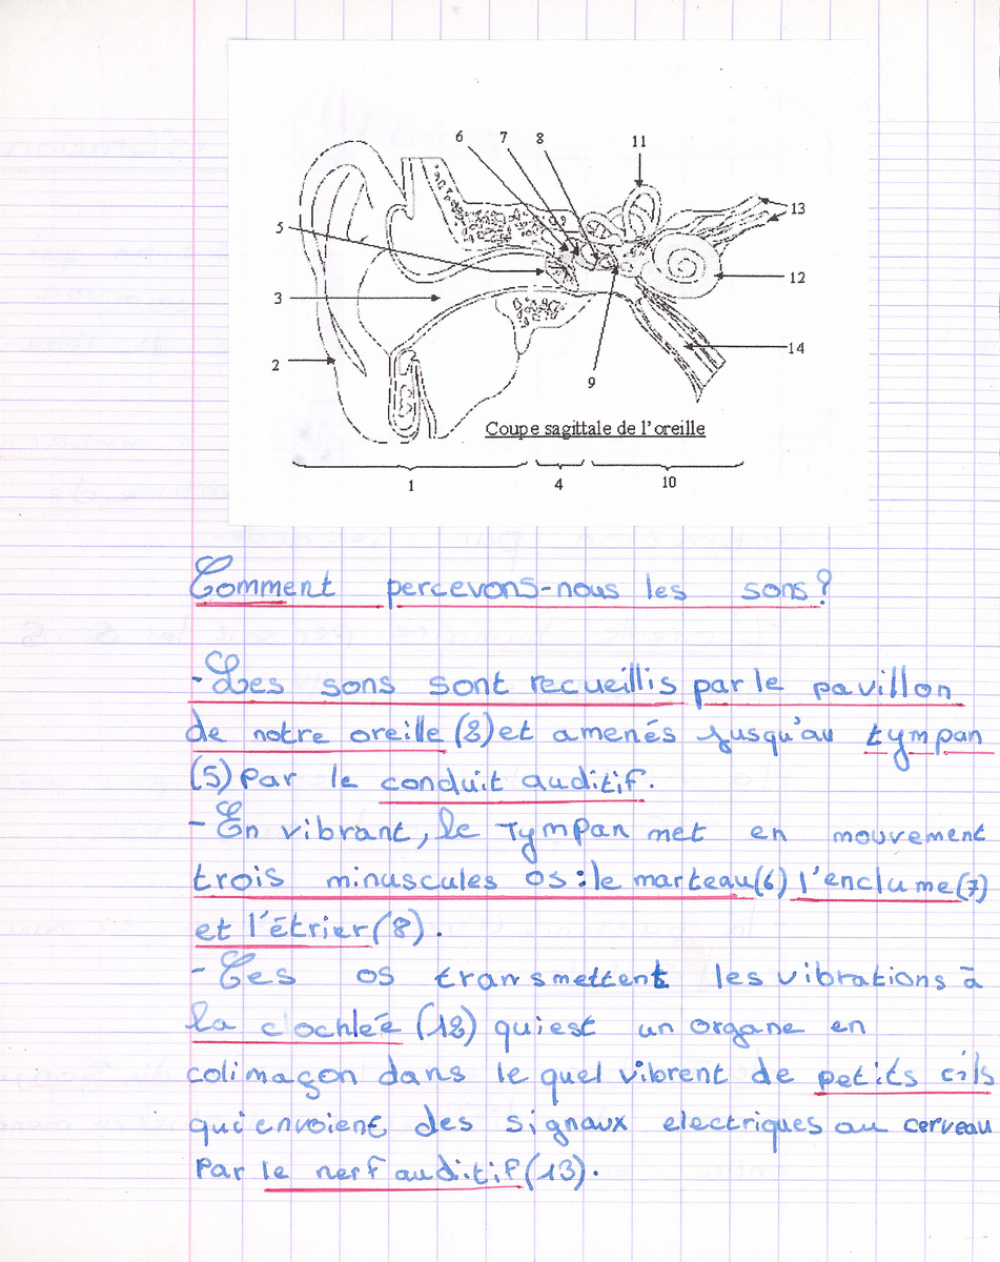 6 7 8 11
13
5
12
3
14
2
9
Coupe sagittale de l'oreille
1 4 10
Comment percevons-nous les sons?
- Les sons sont recueillis par le pavillon
de notre oreille (2) et amenés jusqu'au tympan
(5) par le conduit auditif.
- En vibrant, le tympan met en mouvement
trois minuscules os : le marteau (6) l'enclume (7)
et l'étrier (8).
- Ces os transmettent les vibrations à
la clochleé (12) qui est un organe en
colimaçon dans le quel vibrent de petits cils
qui envoient des signaux electriques au cerveau
par le nerf auditif (13).